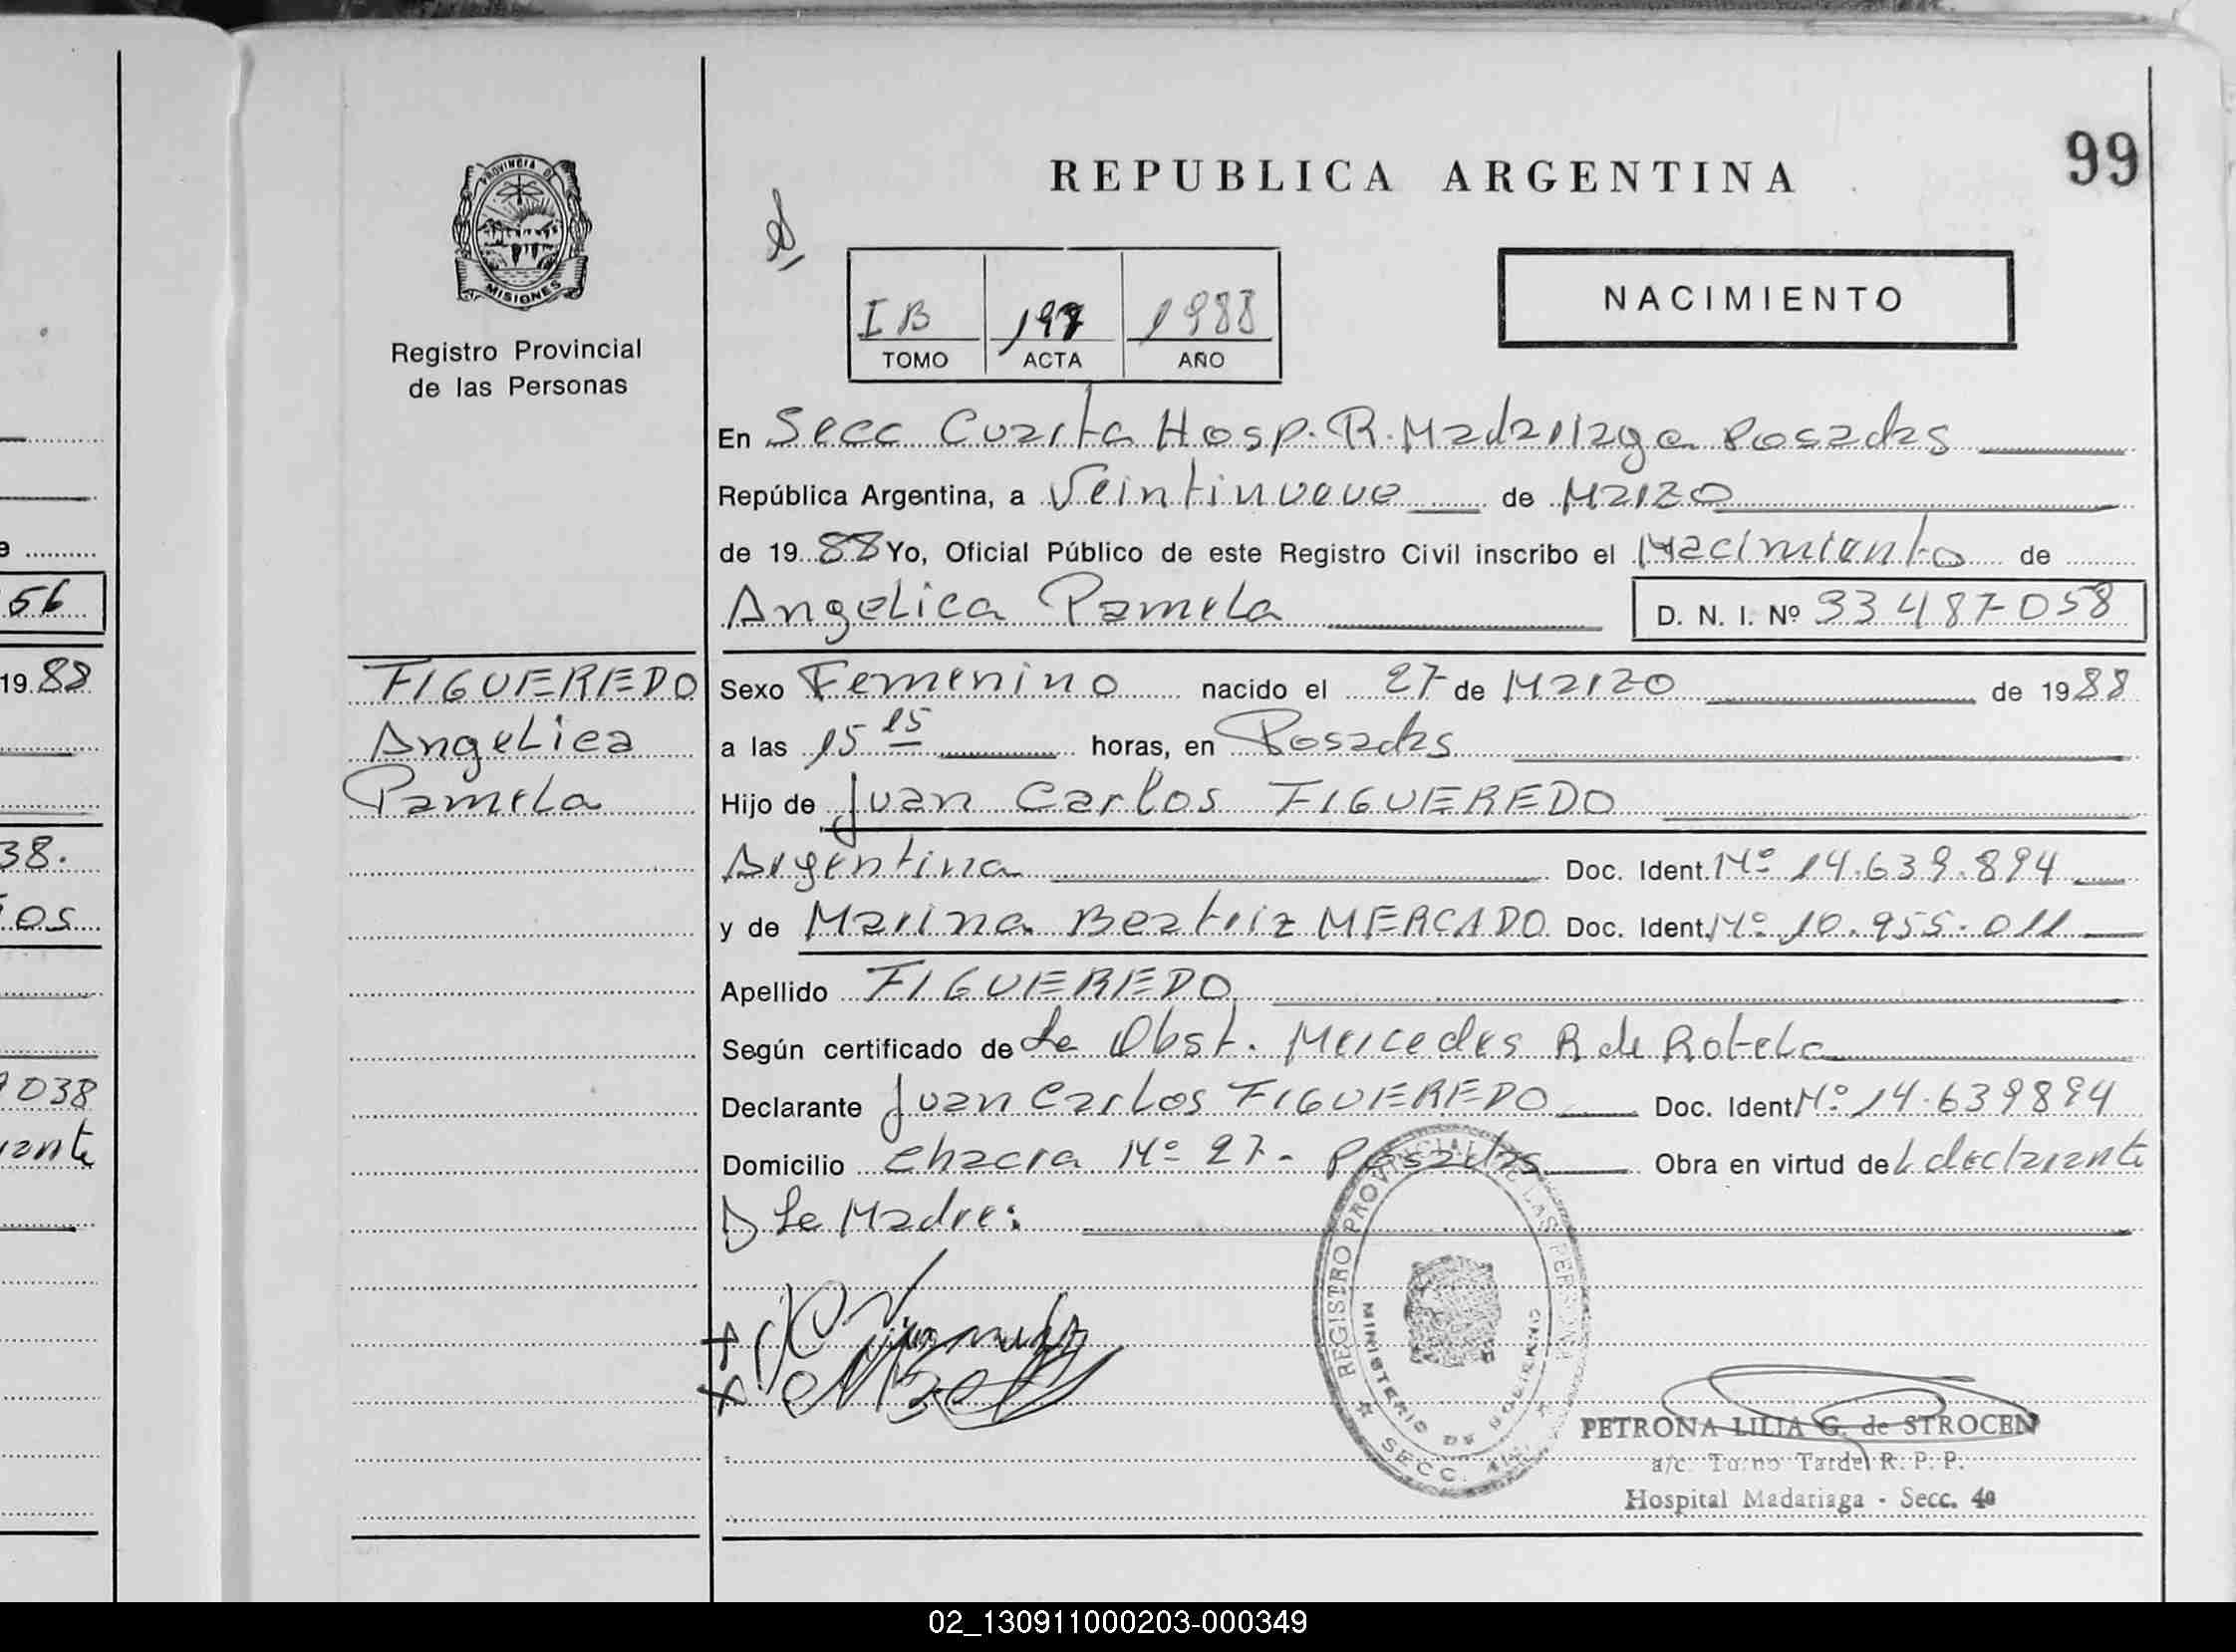 56
1988
38.
os
9038
REPUBLICA ARGENTINA
99
PROVINCIA DE
MISIONES
Registro Provincial
de las Personas
IB 1988
TOMO ACTA AÑO
NACIMIENTO
En Secc Cuarta Hosp. R. Madariaga Posadas
República Argentina, a Veintinueve de Marzo
de 1988 Yo, Oficial Público de este Registro Civil inscribo el Nacimiento de
Angelica Pamela D. N. I. Nº 33487058
FIGUEREDO
Angelica
Pamela
Sexo Femenino nacido el 27 de Marzo de 1988
a las 15 15 horas, en Posadas
Hijo de Juan Carlos FIGUEREDO
Argentina Doc. Ident. Nº 14.639.894
y de Marina Beatriz MERCADO Doc. Ident. Nº 10.955.011
Apellido FIGUEREDO
Según certificado de La Obst. Mercedes R de Rotela
Declarante Juan Carlos FIGUEREDO Doc. Ident Nº 14.639894
Domicilio Chacra Nº 27- Posadas Obra en virtud de L declarante
A La Madre:
REGISTRO PROVINCIAL DE LAS PERSONAS
MINISTERIO DE GOBIERNO
SECC. 4
PETRONA LILIA G. de STROCEN
a/c. Turno Tarde R. P. P.
Hospital Madariaga - Secc. 4a
02_130911000203-000349